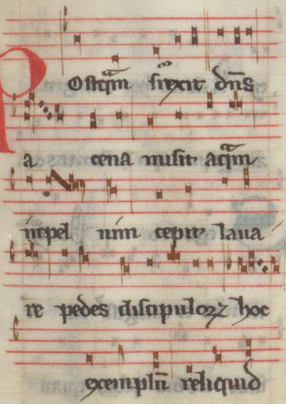 Postqͣm surͤxit dn̄s
a cena misit aqͣm
in pel uim cepit laua
re pedes discipuloꝝ hoc
exemplū reliquid